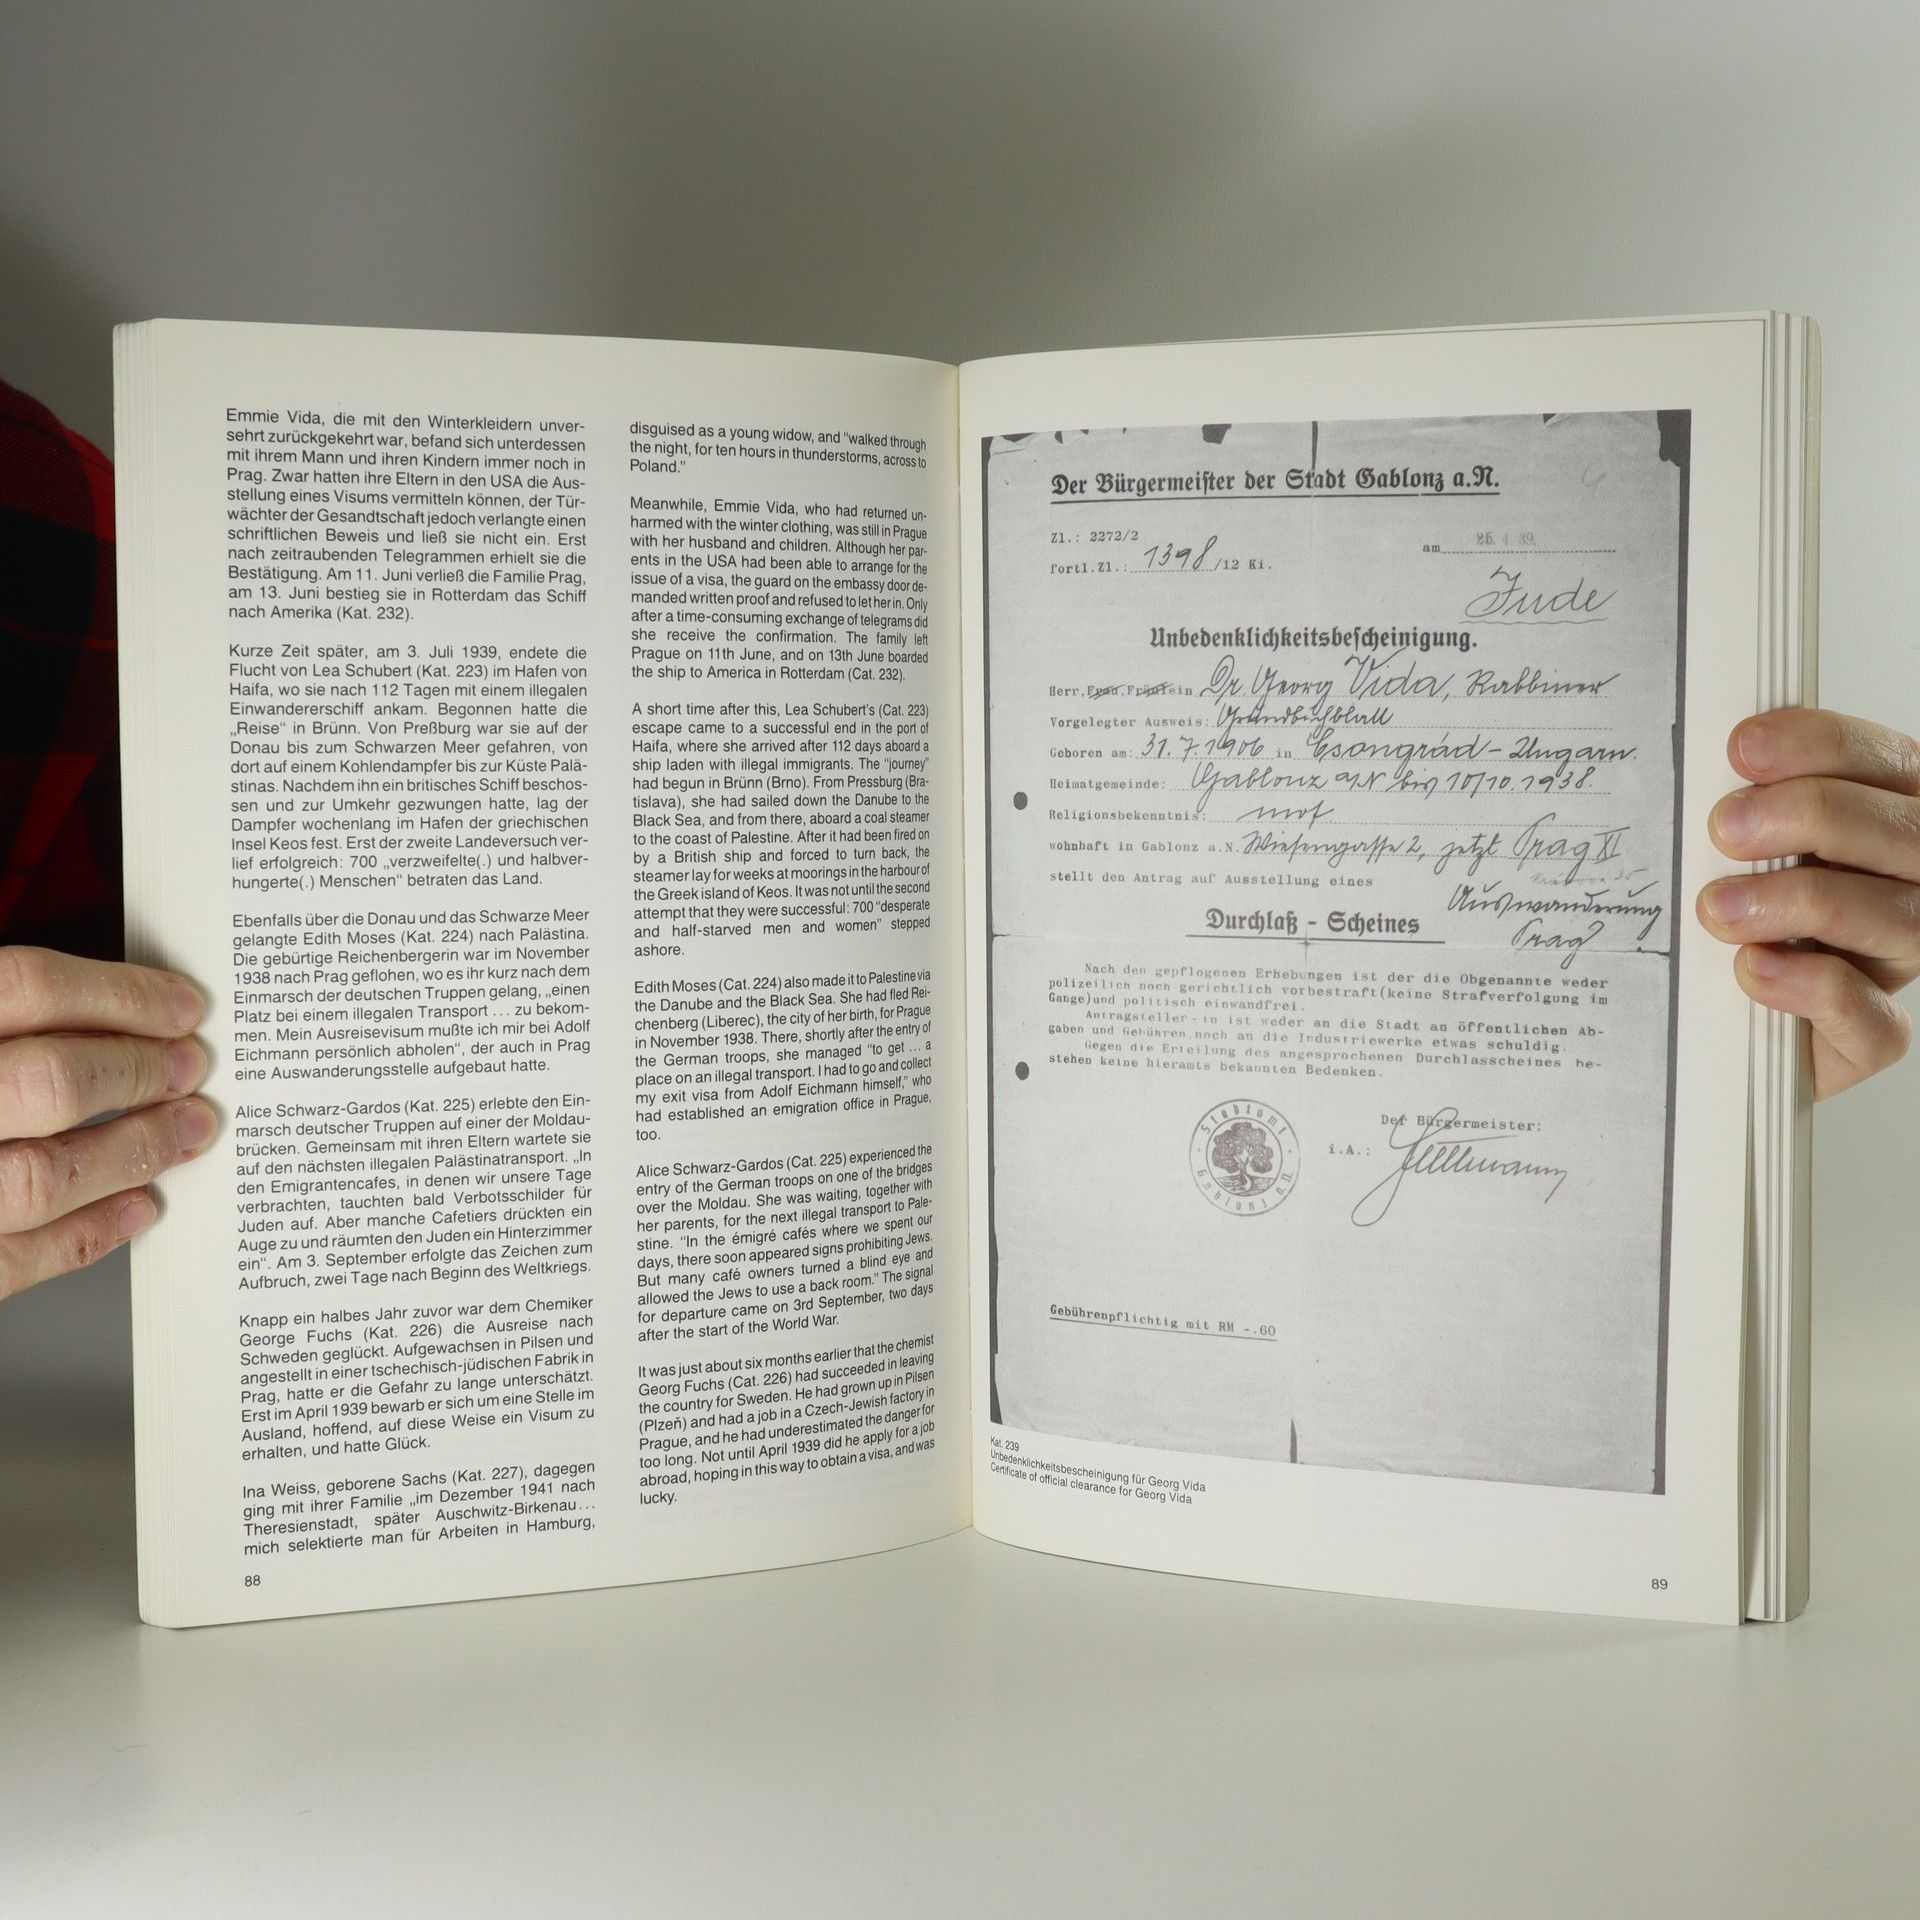 Emmie Vida, die mit den Winterkleidern unver-
sehrt zurückgekehrt war, befand sich unterdessen
mit ihrem Mann und ihren Kindern immer noch in
Prag. Zwar hatten ihre Eltern in den USA die Aus-
stellung eines Visums vermitteln können, der Tür-
wächter der Gesandtschaft jedoch verlangte einen
schriftlichen Beweis und ließ sie nicht ein. Erst
nach zeitraubenden Telegrammen erhielt sie die
Bestätigung. Am 11. Juni verließ die Familie Prag,
am 13. Juni bestieg sie in Rotterdam das Schiff
nach Amerika (Kat. 232).
Kurze Zeit später, am 3. Juli 1939, endete die
Flucht von Lea Schubert (Kat. 223) im Hafen von
Haifa, wo sie nach 112 Tagen mit einem illegalen
Einwandererschiff ankam. Begonnen hatte die
„Reise“ in Brünn. Von Preßburg war sie auf der
Donau bis zum Schwarzen Meer gefahren, von
dort auf einem Kohlendampfer bis zur Küste Palä-
stinas. Nachdem ihn ein britisches Schiff beschos-
sen und zur Umkehr gezwungen hatte, lag der
Dampfer wochenlang im Hafen der griechischen
Insel Keos fest. Erst der zweite Landeversuch ver-
lief erfolgreich: 700 „verzweifelte(.) und halbver-
hungerte(.) Menschen“ betraten das Land.
Ebenfalls über die Donau und das Schwarze Meer
gelangte Edith Moses (Kat. 224) nach Palästina.
Die gebürtige Reichenbergerin war im November
1938 nach Prag geflohen, wo es ihr kurz nach dem
Einmarsch der deutschen Truppen gelang, „einen
Platz bei einem illegalen Transport ... zu bekom-
men. Mein Ausreisevisum mußte ich mir bei Adolf
Eichmann persönlich abholen“, der auch in Prag
eine Auswanderungsstelle aufgebaut hatte.
Alice Schwarz-Gardos (Kat. 225) erlebte den Ein-
marsch deutscher Truppen auf einer der Moldau-
brücken. Gemeinsam mit ihren Eltern wartete sie
auf den nächsten illegalen Palästinatransport. „In
den Emigrantencafes, in denen wir unsere Tage
verbrachten, tauchten bald Verbotsschilder für
Juden auf. Aber manche Cafetiers drückten ein
Auge zu und räumten den Juden ein Hinterzimmer
ein“. Am 3. September erfolgte das Zeichen zum
Aufbruch, zwei Tage nach Beginn des Weltkriegs.
Knapp ein halbes Jahr zuvor war dem Chemiker
George Fuchs (Kat. 226) die Ausreise nach
Schweden geglückt. Aufgewachsen in Pilsen und
angestellt in einer tschechisch-jüdischen Fabrik in
Prag, hatte er die Gefahr zu lange unterschätzt.
Erst im April 1939 bewarb er sich um eine Stelle im
Ausland, hoffend, auf diese Weise ein Visum zu
erhalten, und hatte Glück.
Ina Weiss, geborene Sachs (Kat. 227), dagegen
ging mit ihrer Familie „im Dezember 1941 nach
Theresienstadt, später Auschwitz-Birkenau...
mich selektierte man für Arbeiten in Hamburg,
88
disguised as a young widow, and “walked through
the night, for ten hours in thunderstorms, across to
Poland.”
Meanwhile, Emmie Vida, who had returned un-
harmed with the winter clothing, was still in Prague
with her husband and children. Although her par-
ents in the USA had been able to arrange for the
issue of a visa, the guard on the embassy door de-
manded written proof and refused to let her in. Only
after a time-consuming exchange of telegrams did
she receive the confirmation. The family left
Prague on 11th June, and on 13th June boarded
the ship to America in Rotterdam (Cat. 232).
A short time after this, Lea Schubert's (Cat. 223)
escape came to a successful end in the port of
Haifa, where she arrived after 112 days aboard a
ship laden with illegal immigrants. The “journey”
had begun in Brünn (Brno). From Pressburg (Bra-
tislava), she had sailed down the Danube to the
Black Sea, and from there, aboard a coal steamer
to the coast of Palestine. After it had been fired on
by a British ship and forced to turn back, the
steamer lay for weeks at moorings in the harbour of
the Greek island of Keos. It was not until the second
attempt that they were successful: 700 “desperate
and half-starved men and women” stepped
ashore.
Edith Moses (Cat. 224) also made it to Palestine via
the Danube and the Black Sea. She had fled Rei-
chenberg (Liberec), the city of her birth, for Prague
in November 1938. There, shortly after the entry of
the German troops, she managed “to get ... a
place on an illegal transport. I had to go and collect
my exit visa from Adolf Eichmann himself,” who
had established an emigration office in Prague,
too.
Alice Schwarz-Gardos (Cat. 225) experienced the
entry of the German troops on one of the bridges
over the Moldau. She was waiting, together with
her parents, for the next illegal transport to Pale-
stine. “In the émigré cafés where we spent our
days, there soon appeared signs prohibiting Jews.
But many café owners turned a blind eye and
allowed the Jews to use a back room.” The signal
for departure came on 3rd September, two days
after the start of the World War.
It was just about six months earlier that the chemist
Georg Fuchs (Cat. 226) had succeeded in leaving
the country for Sweden. He had grown up in Pilsen
(Plzeň) and had a job in a Czech-Jewish factory in
Prague, and he had underestimated the danger for
too long. Not until April 1939 did he apply for a job
abroad, hoping in this way to obtain a visa, and was
lucky.
Der Bürgermeister der Stadt Gablonz a.N.
Zl.: 2272/2
am 26. 4 39.
fortl.Zl.: 1398 /12 Ki.
Jude
Unbedenklichkeitsbescheinigung.
Herr, Frau, Fräulein Dr. Georg Vida, Rabbiner
Vorgelegter Ausweis: Grundbuchblatt
Geboren am: 31.7.1906 in Csongrád - Ungarn.
Heimatgemeinde: Gablonz a/N bis 10/10.1938.
Religionsbekenntnis: mos.
wohnhaft in Gablonz a.N. Wiesengasse 2, jetzt Prag XI
35
stellt den Antrag auf Ausstellung eines
Auswanderung
Prag
Durchlaß - Scheines
Nach den gepflogenen Erhebungen ist der die Obgenannte weder
polizeilich noch gerichtlich vorbestraft(keine Strafverfolgung im
Gange)und politisch einwandfrei.
Antragsteller-in ist weder an die Stadt an öffentlichen Ab-
gaben und Gebühren noch an die Industriewerke etwas schuldig.
Gegen die Erteilung des angesprochenen Durchlasscheines be-
stehen keine hieramts bekannten Bedenken.
Stadtamt
Gablonz a.N.
Der Bürgermeister:
i.A.:
Gebührenpflichtig mit RM -.60
Kat. 239
Unbedenklichkeitsbescheinigung für Georg Vida
Certificate of official clearance for Georg Vida
89